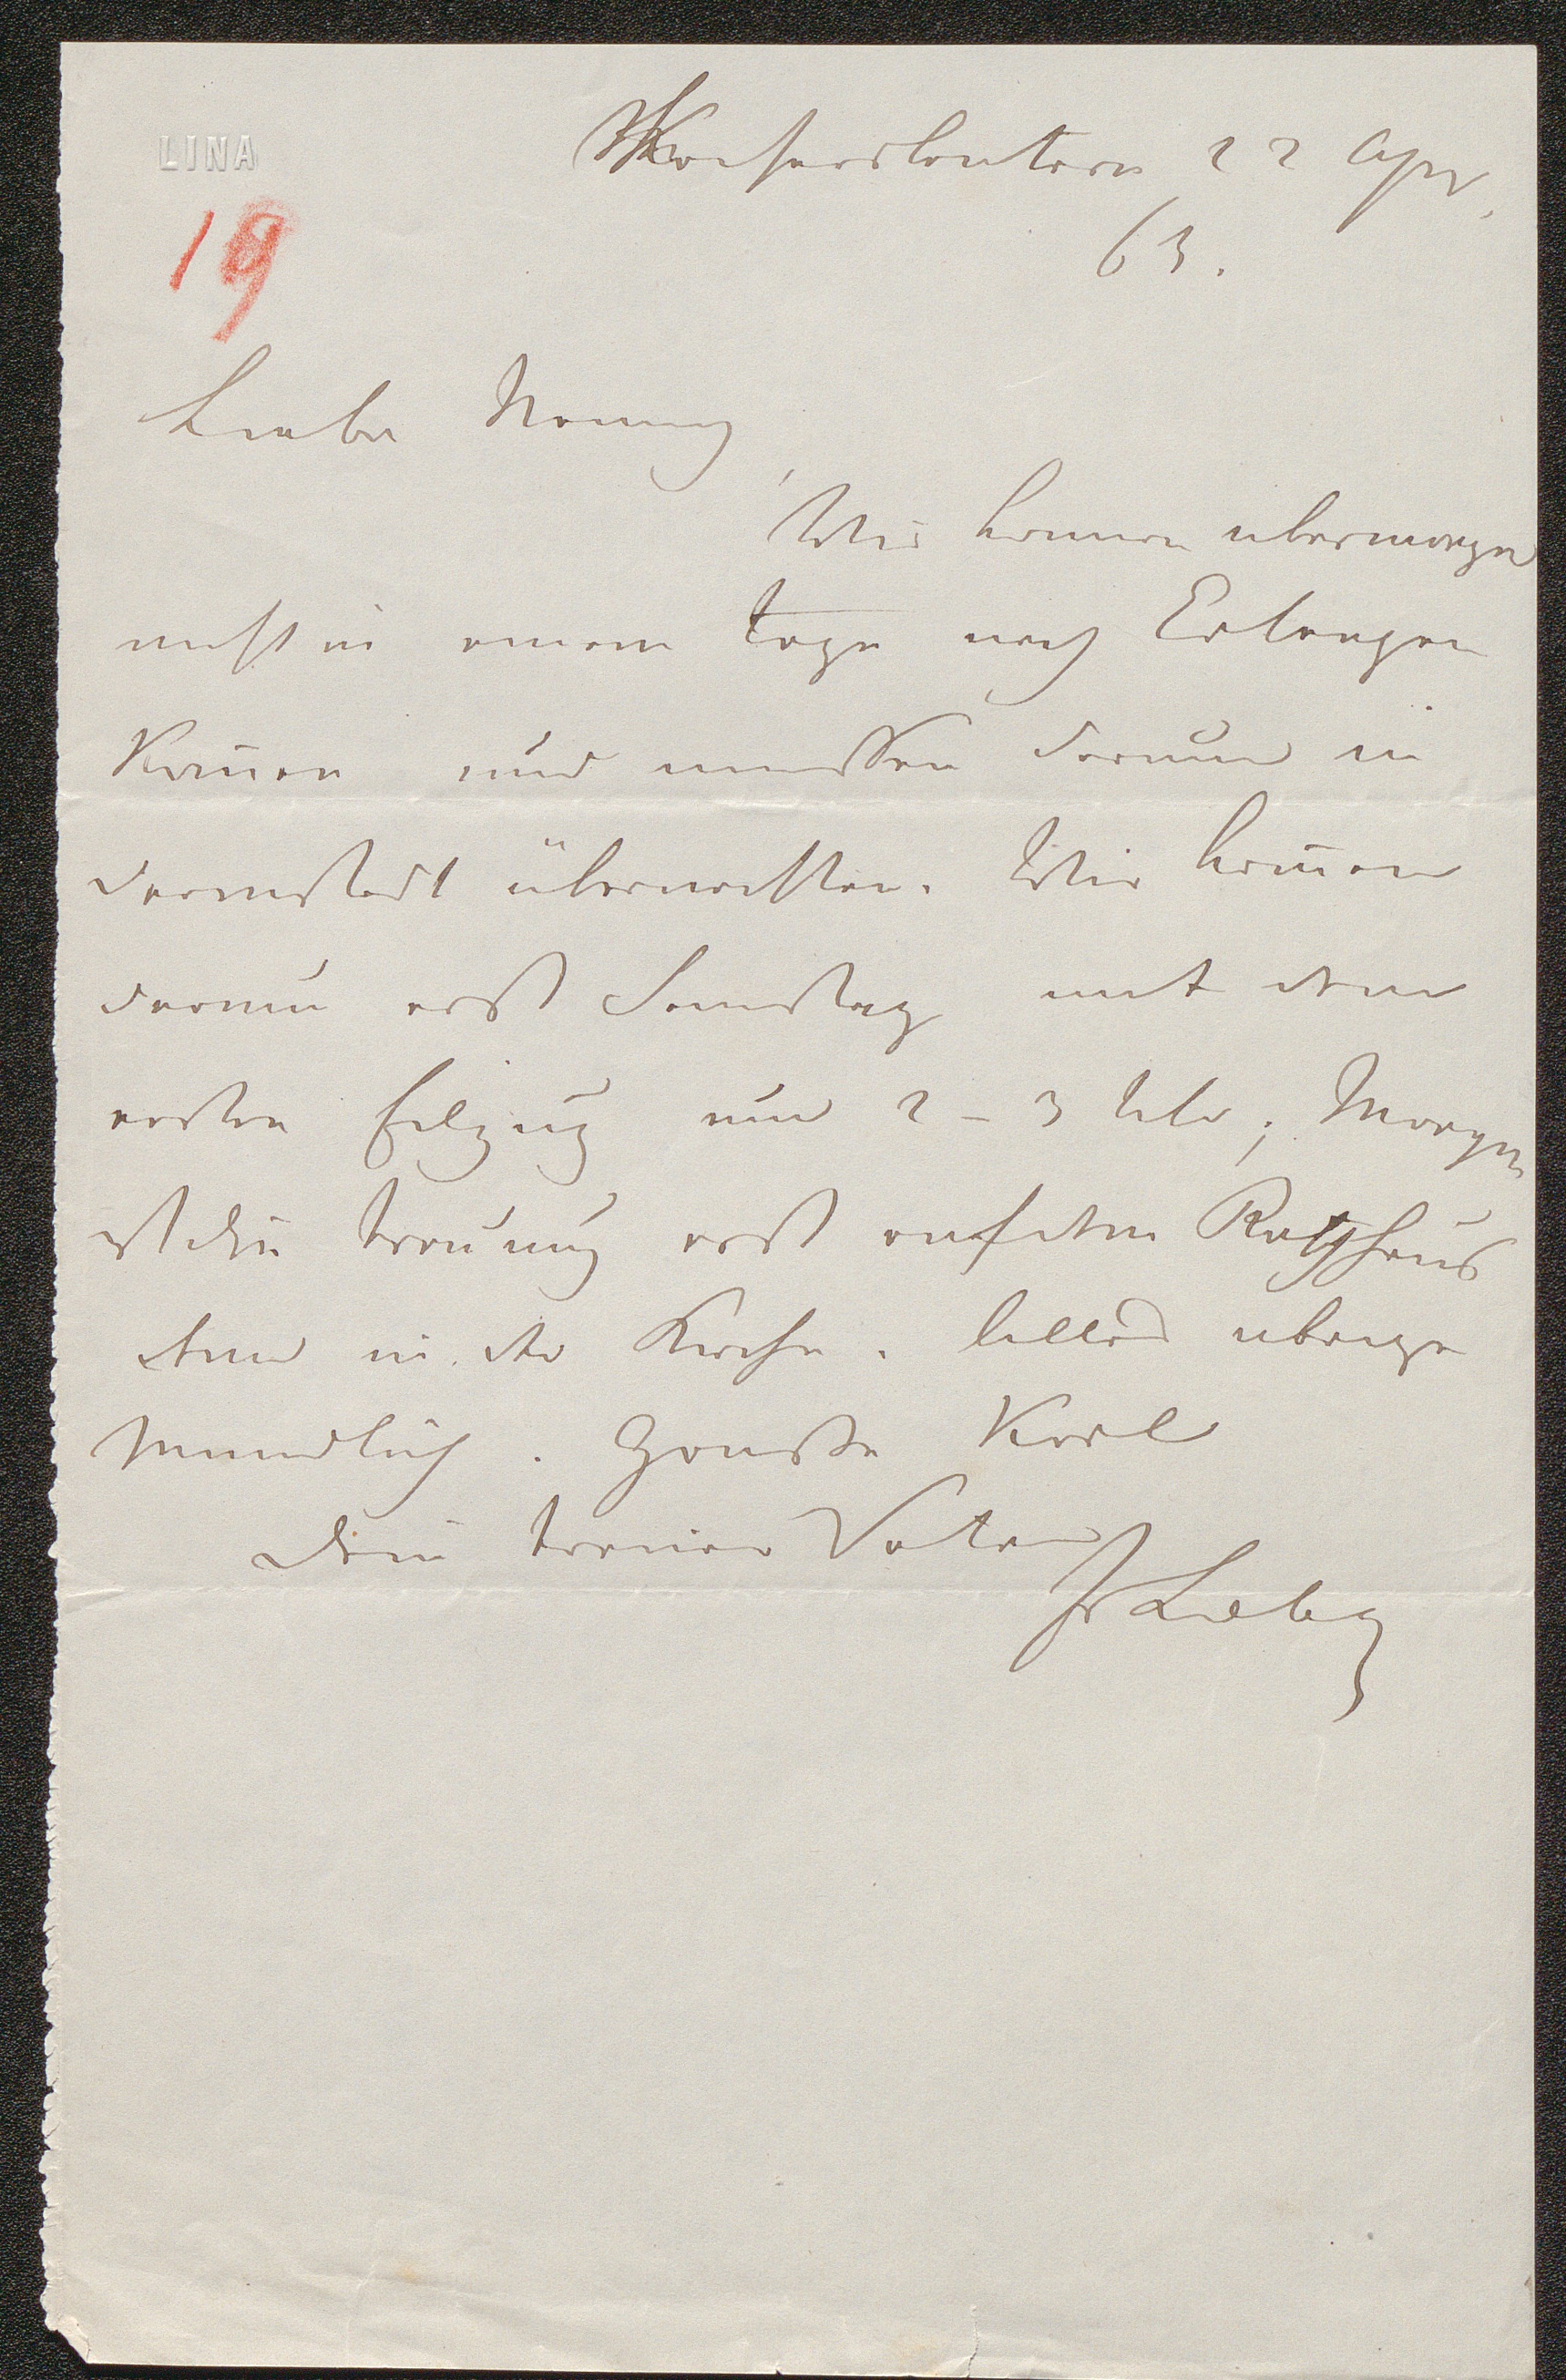 LINA
Kaiserslautern 22 Apr.
63.
19
Liebe Nanny,
Wir können übermorgen
nicht in einem Tage nach Erlangen
kom̄en und mussen darum in
Darmstadt übernachten. Wir kom̄en
darum erst Samstag mit dem
ersten Eilzug um 2-3 Uhr; Morgen
ist die Trauung erst auf dem Rathhaus
dann in der Kirche. Alles ubrige
Mundlich. Grüsse Karl
Dein treuer Vater
JvLiebig